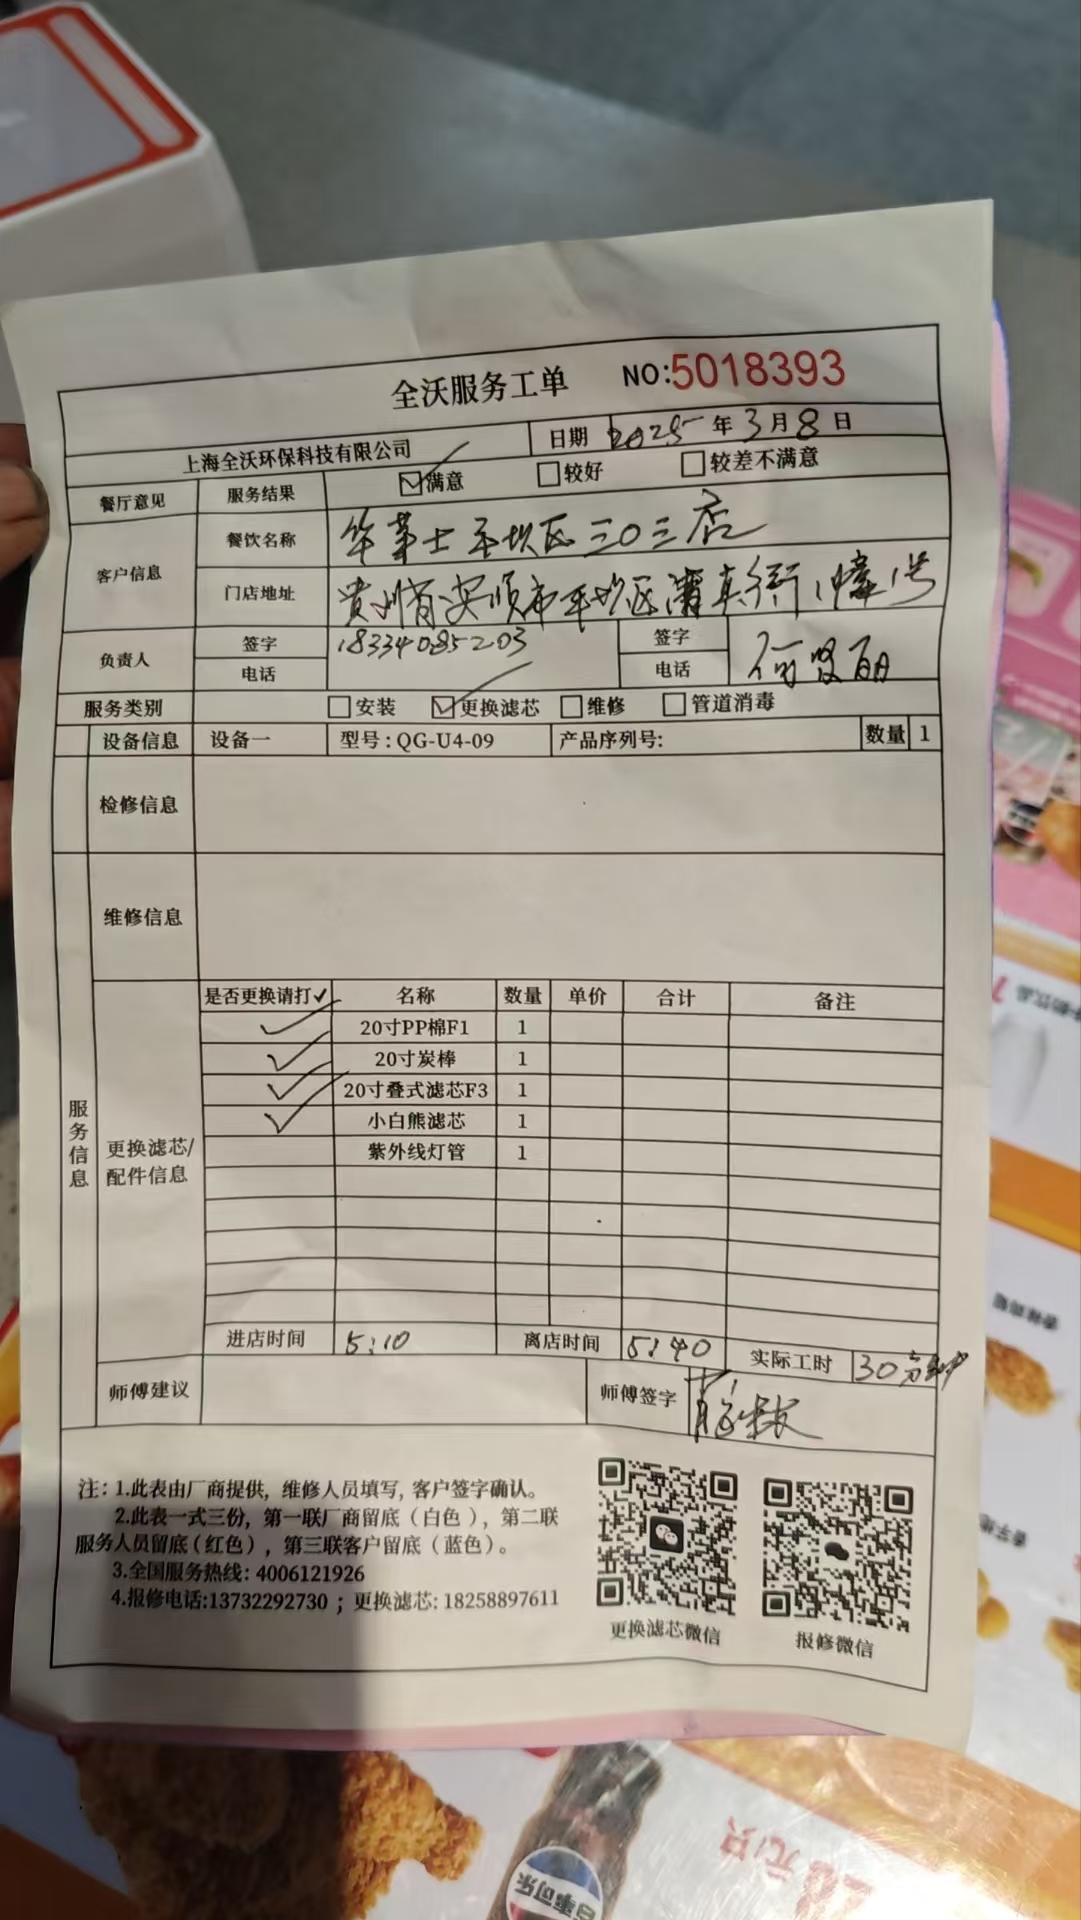 全沃服务工单 NO:5018393
上海全沃环保科技有限公司 日期 2025年3月8日
餐厅意见 服务结果 ☑满意 □较好 □较差不满意
客户信息 餐饮名称 华莱士平坝区三〇三店
门店地址 贵州省安顺市平坝区清真街1幢1号
负责人 签字 18334085203 签字
电话 电话
服务类别 □安装 ☑更换滤芯 □维修 □管道消毒
设备信息 设备一 型号:QG-U4-09 产品序列号: 数量 1
检修信息
维修信息
服务信息
更换滤芯/配件信息
是否更换请打✓ 名称 数量 单价 合计 备注
✓ 20寸PP棉F1 1
✓ 20寸炭棒 1
✓ 20寸叠式滤芯F3 1
✓ 小白熊滤芯 1
紫外线灯管 1
进店时间 5:10 离店时间 5:40 实际工时 30分钟
师傅建议 师傅签字
注：1.此表由厂商提供，维修人员填写，客户签字确认。
2.此表一式三份，第一联厂商留底（白色），第二联
服务人员留底（红色），第三联客户留底（蓝色）。
3.全国服务热线：4006121926
4.报修电话:13732292730；更换滤芯:18258897611
更换滤芯微信 报修微信
百事可乐
元/只